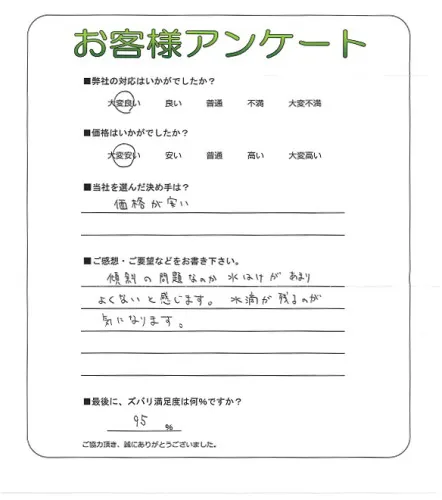 お客様アンケート
■弊社の対応はいかがでしたか？
大変良い 良い 普通 不満 大変不満
■価格はいかがでしたか？
大変安い 安い 普通 高い 大変高い
■当社を選んだ決め手は？
価格が安い
■ご感想・ご要望などをお書き下さい。
傾斜の問題なのか 水はけがあまり
よくないと感じます。 水滴が残るのが
気になります。
■最後に、ズバリ満足度は何%ですか？
95 %
ご協力頂き、誠にありがとうございました。